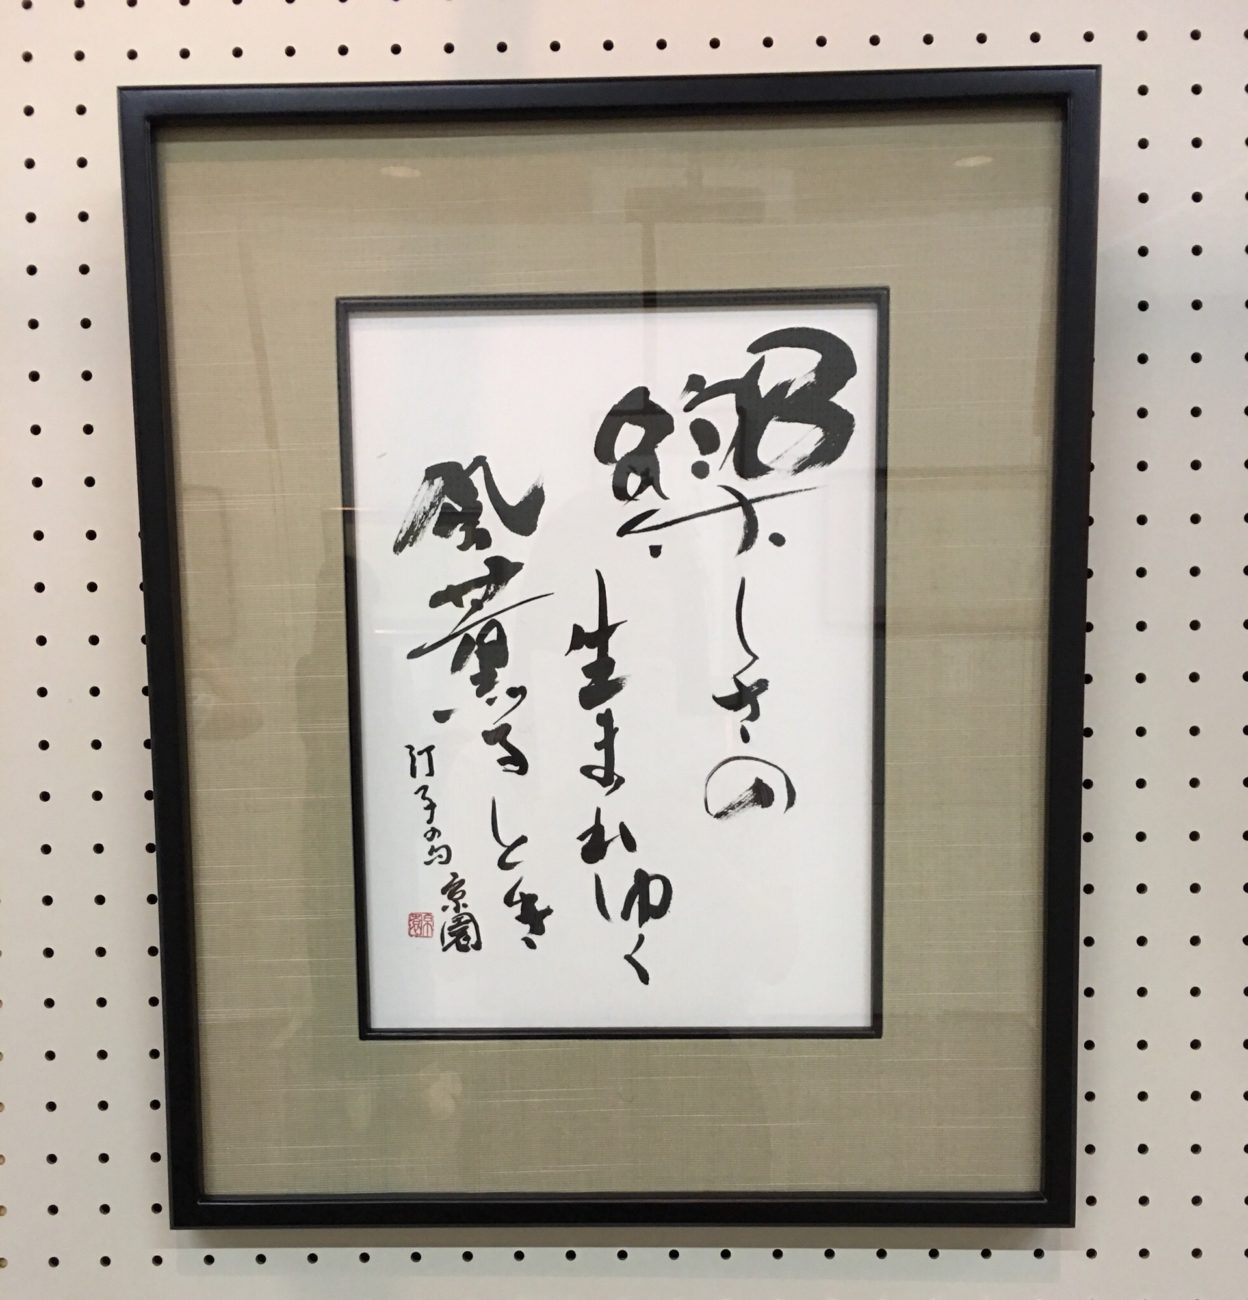 樂しさの
生まれゆく
風薫るとき
汀子の句 京園